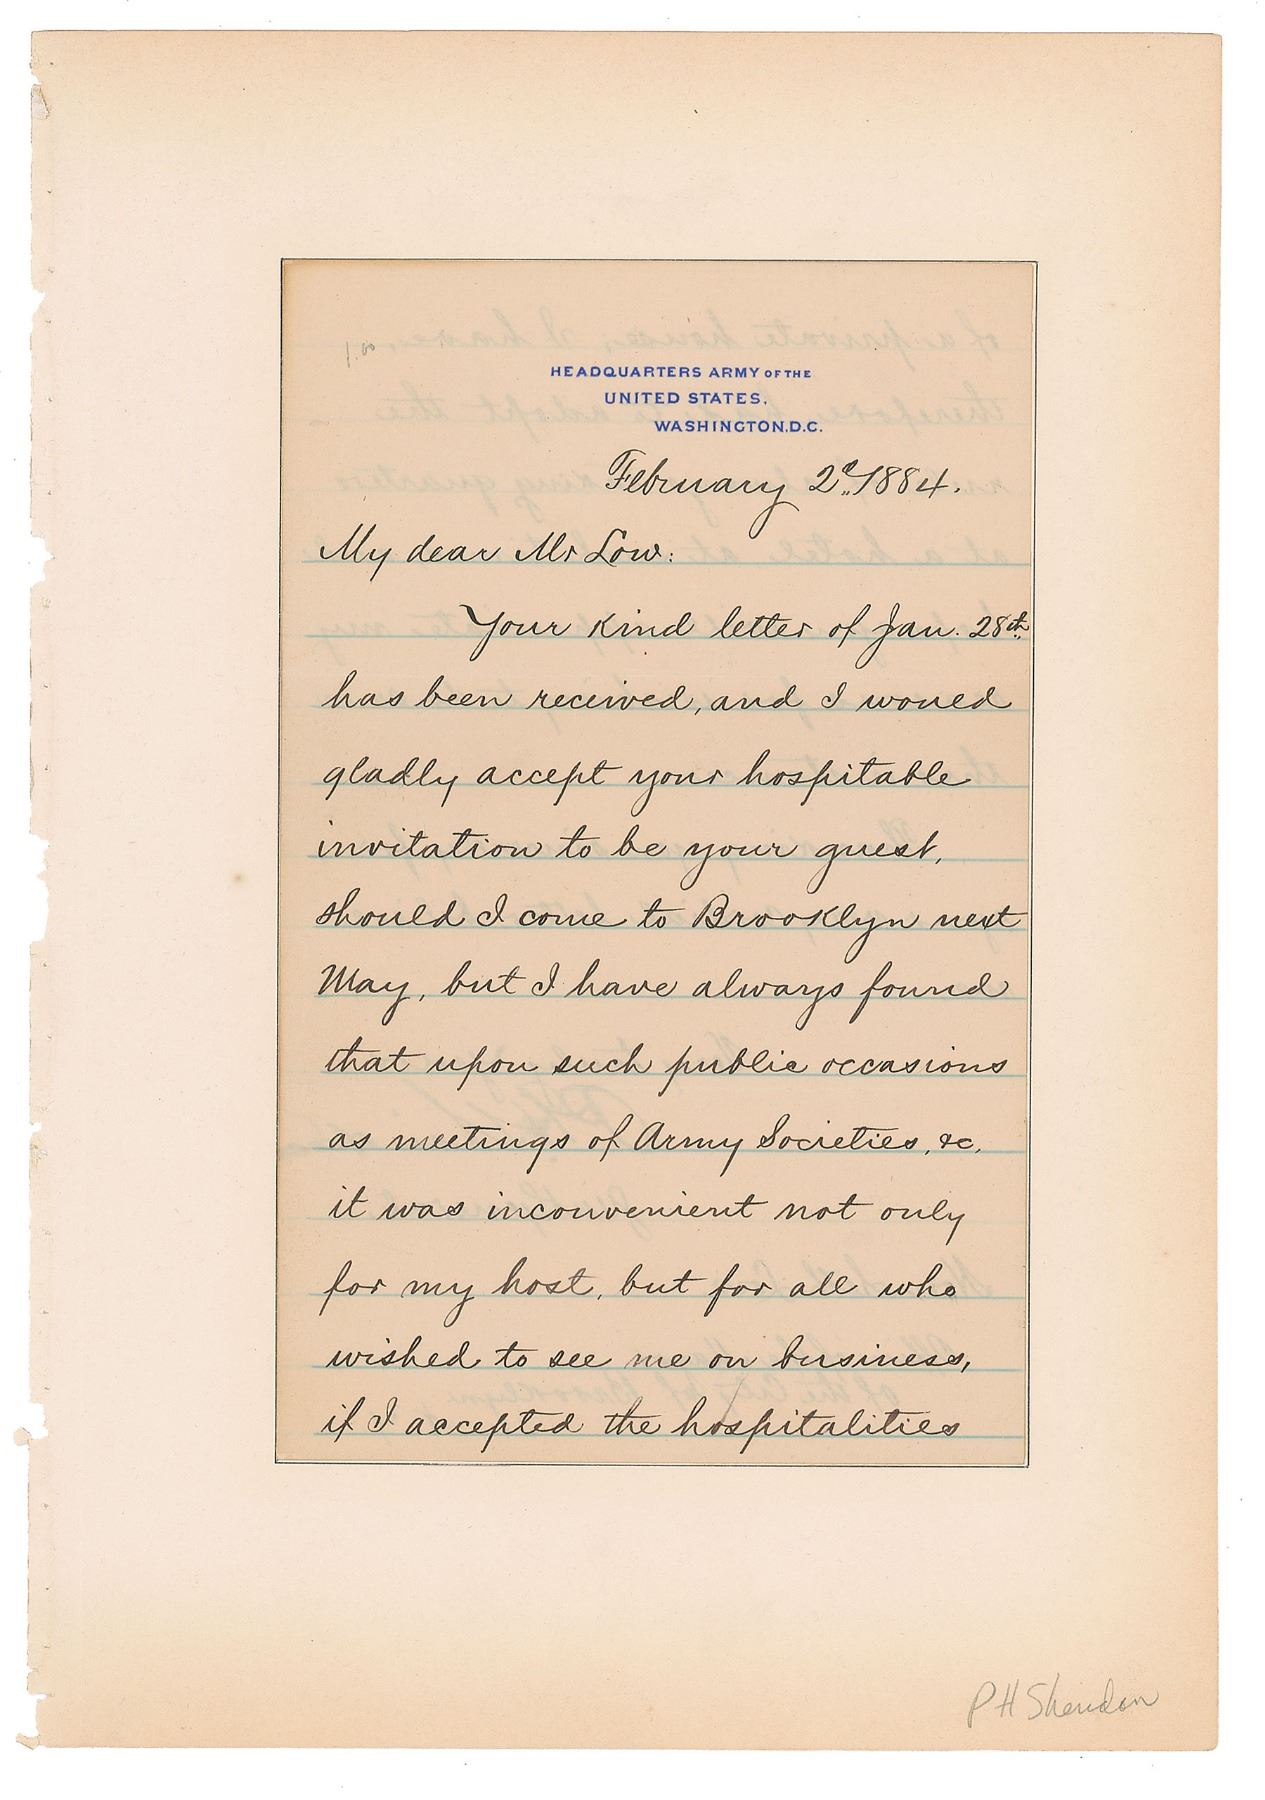 1.00
HEADQUARTERS ARMY OF THE
UNITED STATES,
WASHINGTON, D.C.
February 2d, 1884.
My dear Mr Low:
Your kind letter of Jan. 28th,
has been received, and I would
gladly accept your hospitable
invitation to be your guest,
should I come to Brooklyn next
May, but I have always found
that upon such public occasions
as meetings of Army Societies, &c,
it was inconvenient not only
for my host, but for all who
wished to see me on business,
if I accepted the hospitalities
P H Sheridan